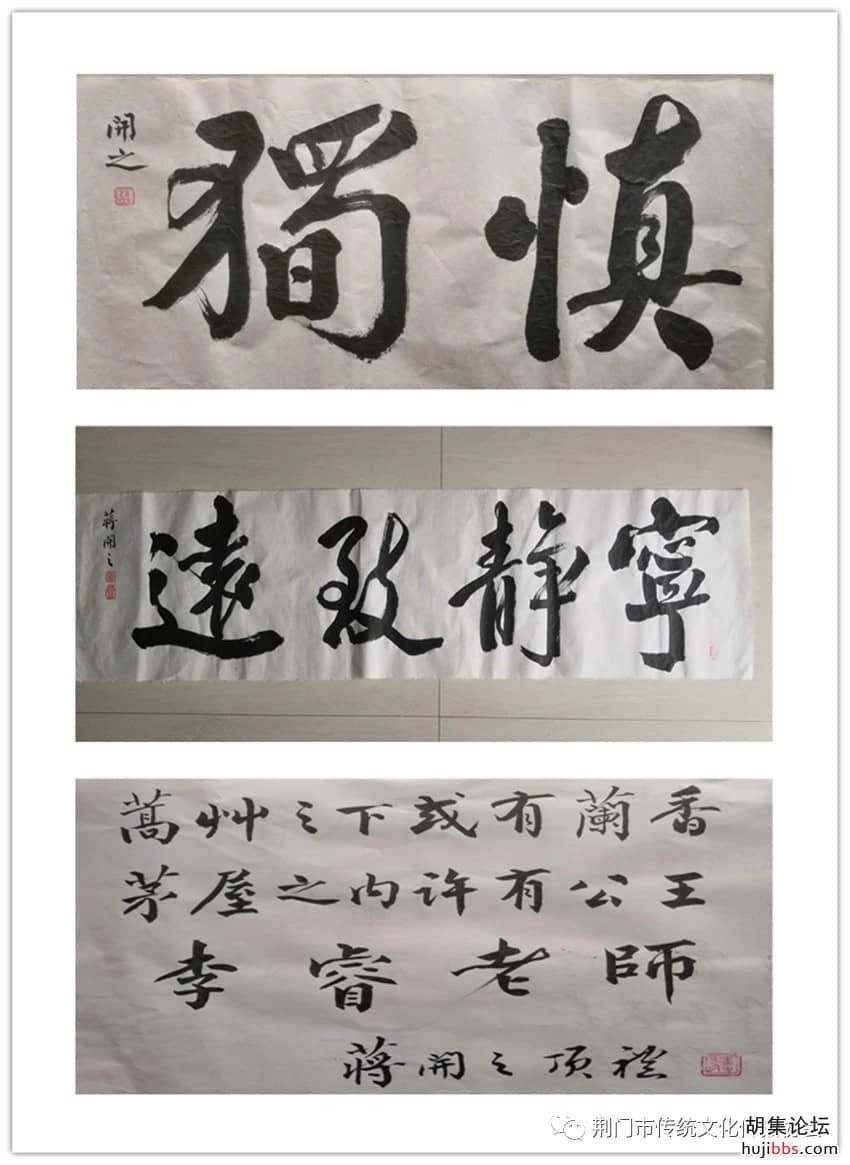 慎獨
開之
寧静致遠
蔣開之
蒿艸之下或有蘭香
茅屋之内许有公王
李睿老師
蔣開之顶禮
荆门市传统文化
胡集论坛
hujibbs.com